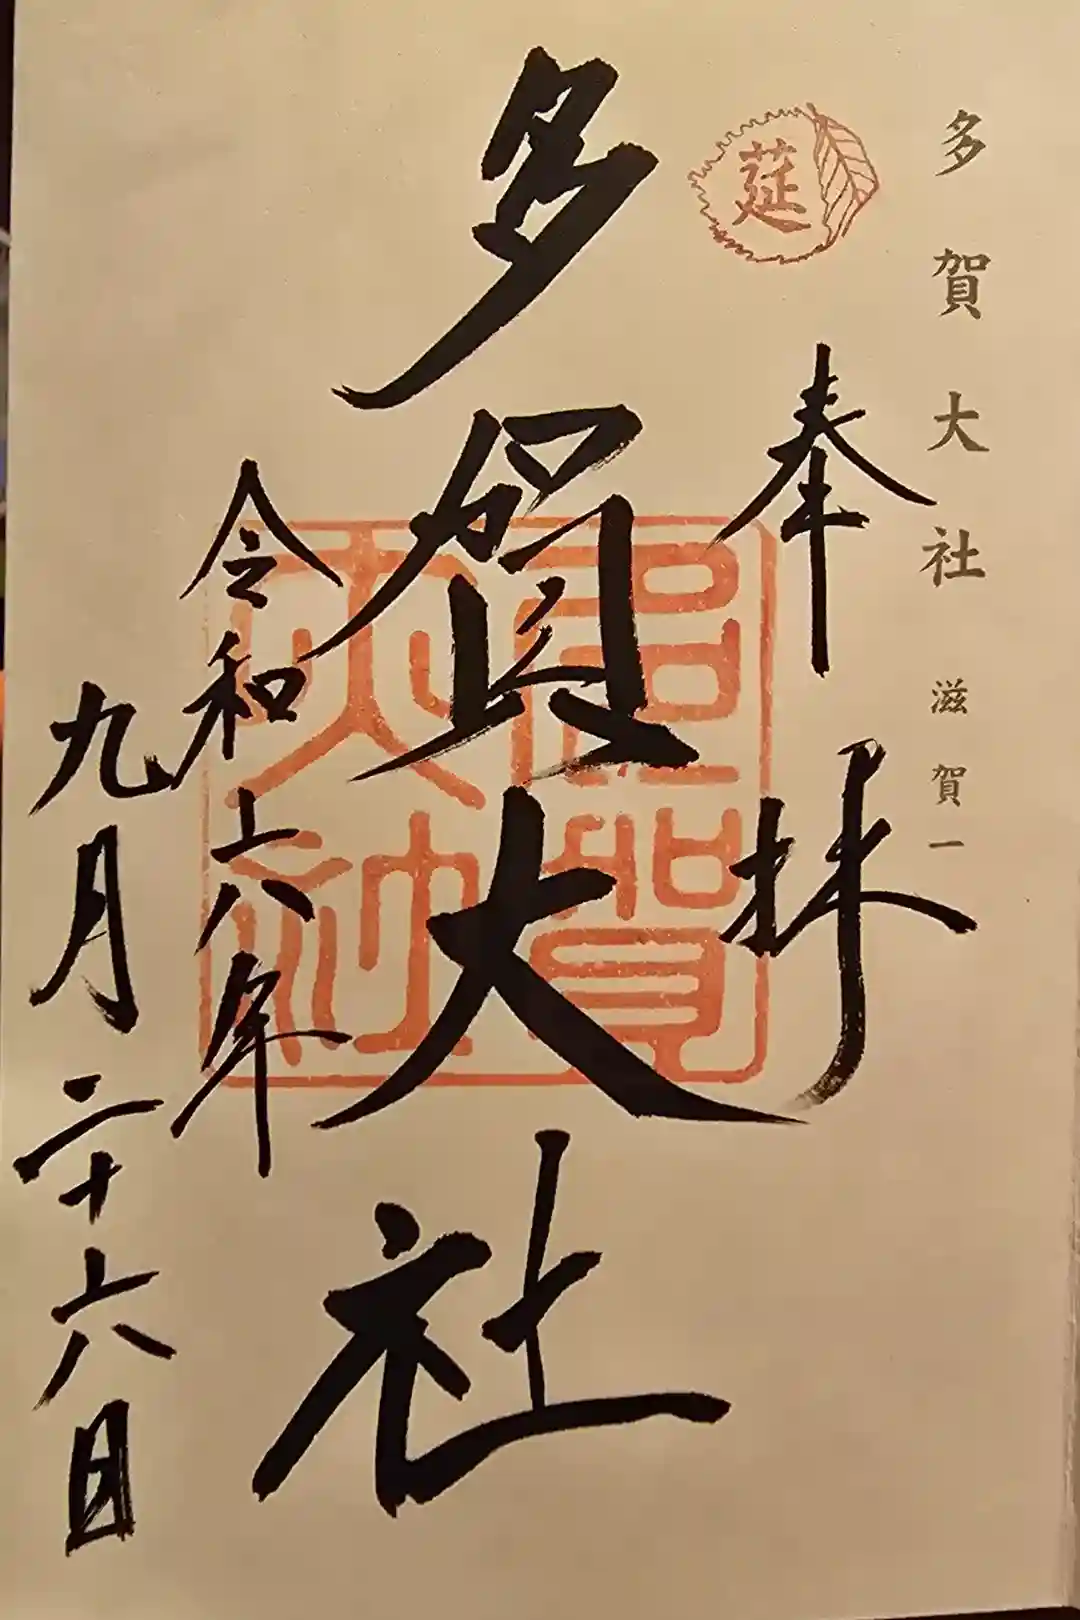 多賀大社 滋賀一
莚
奉拝
多賀大社
令和六年
九月二十六日